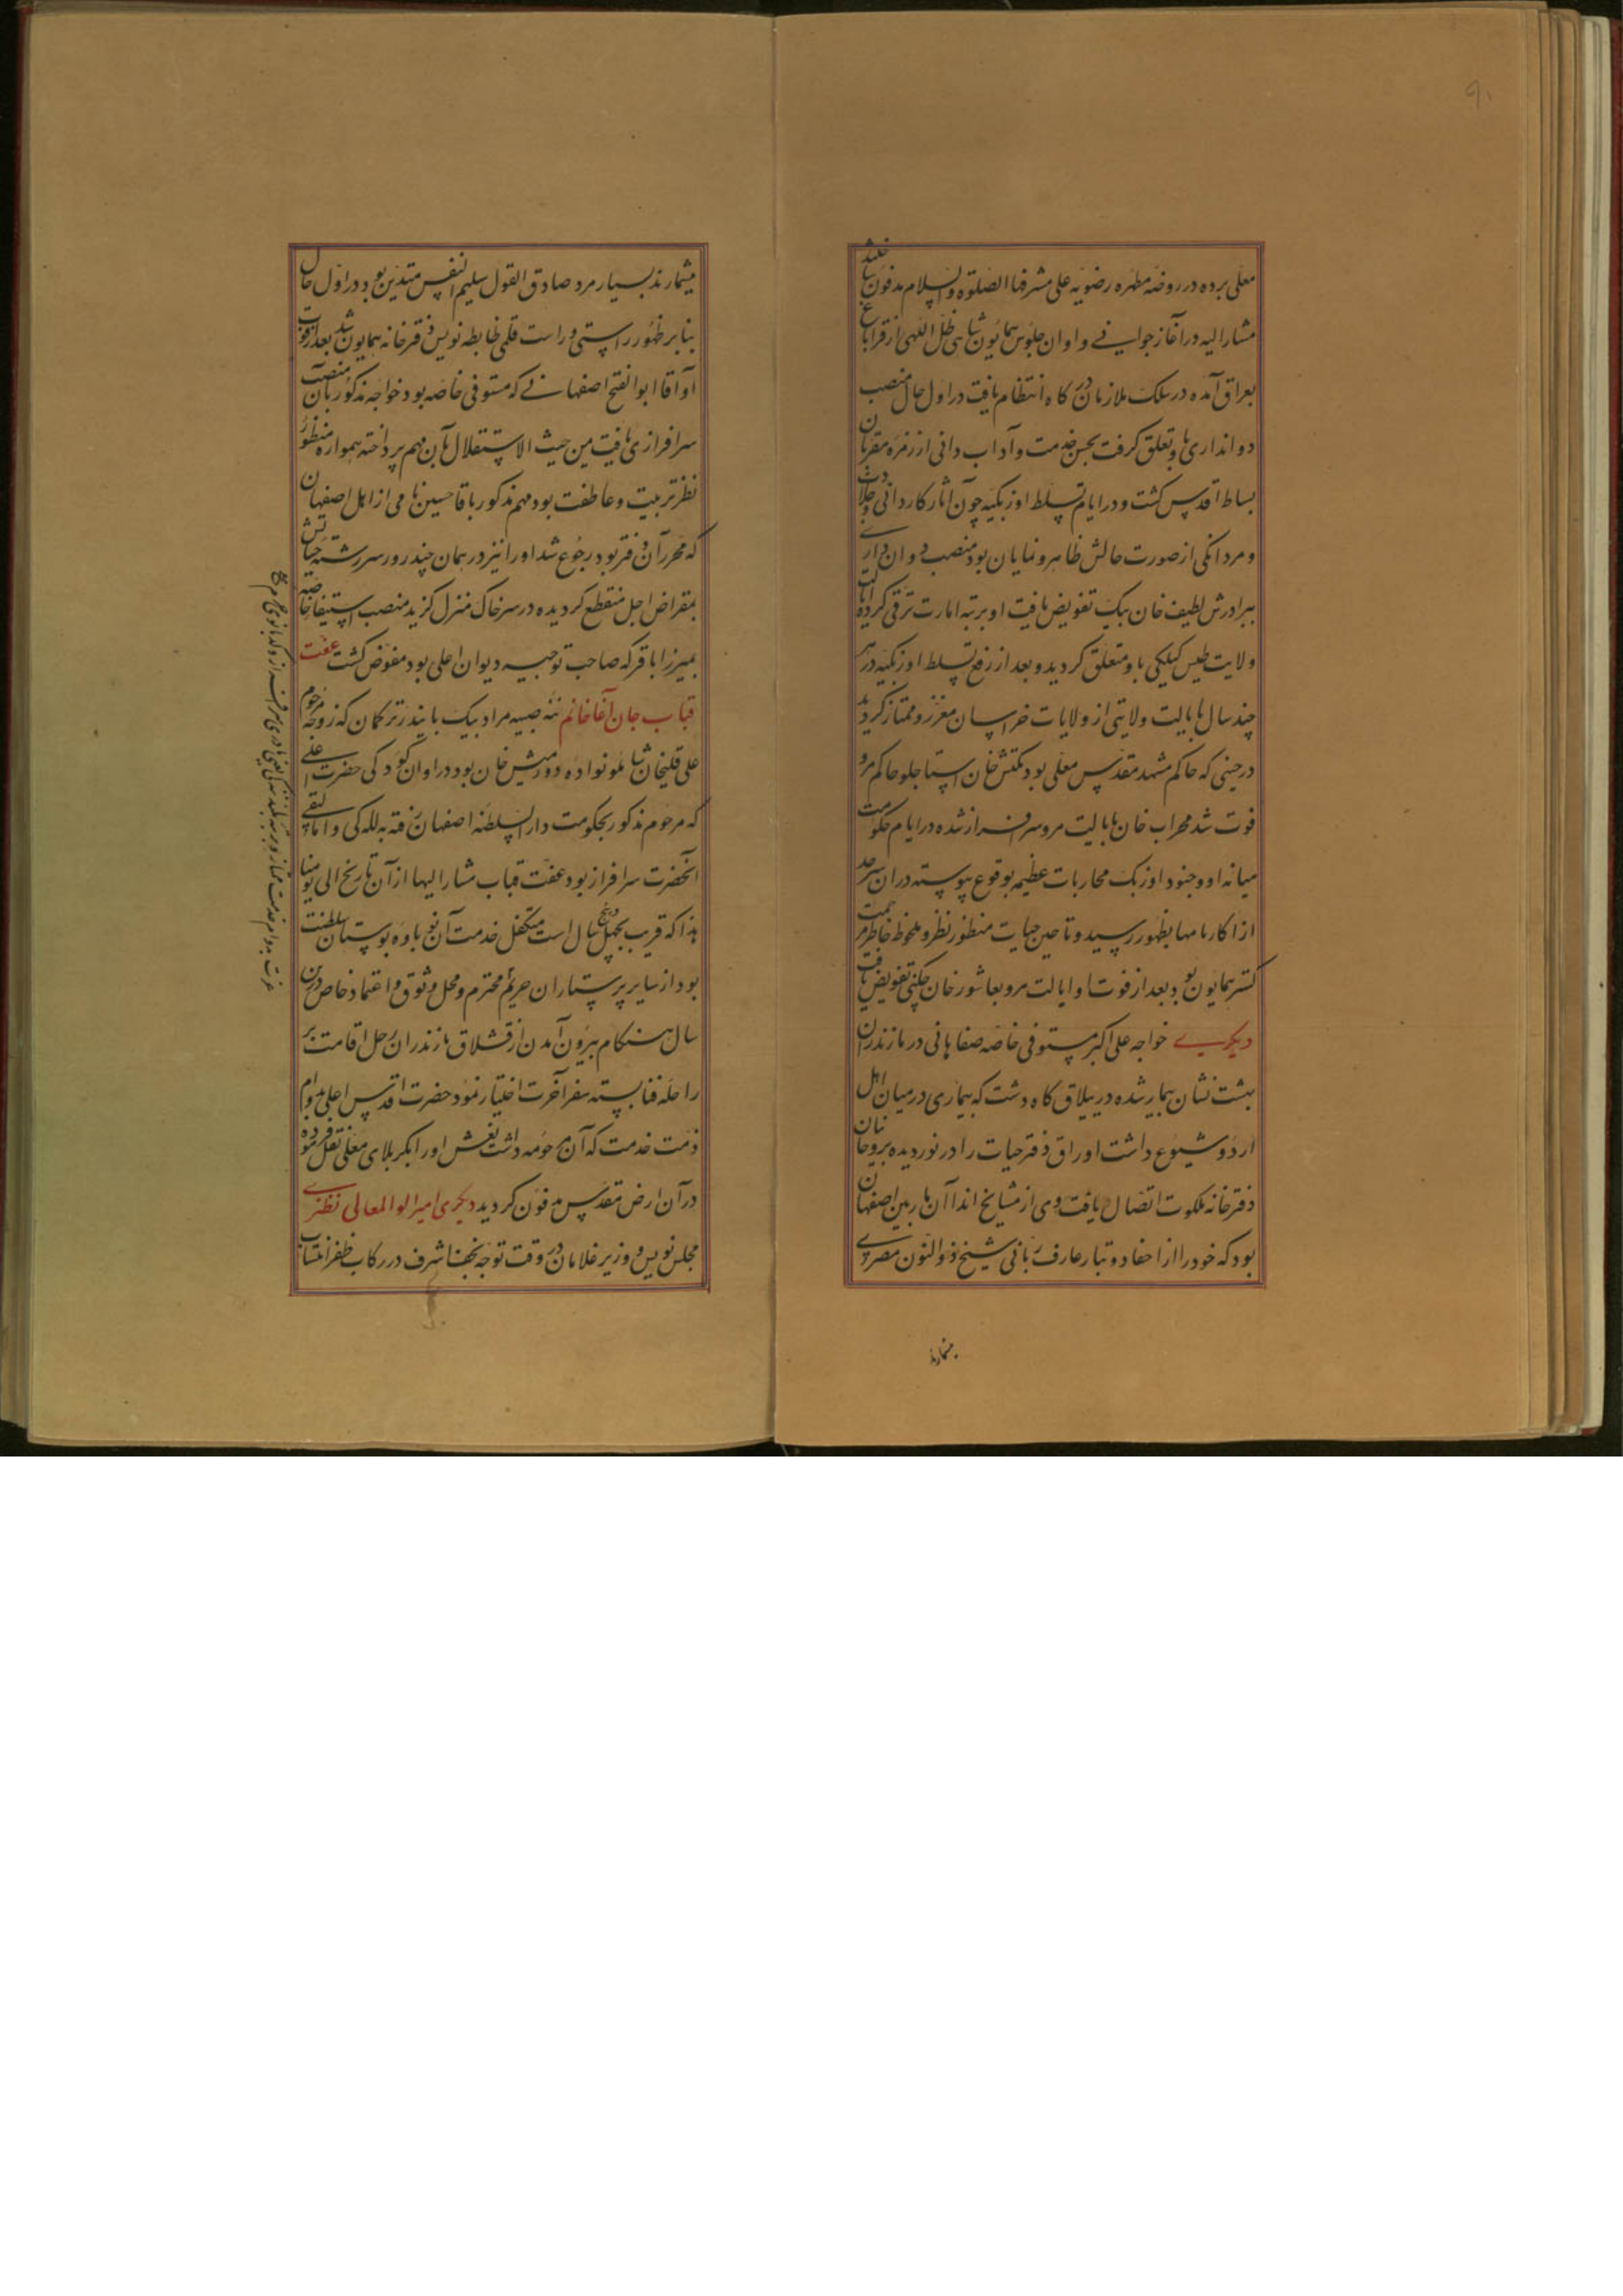 ۹۰
معلی برده در روضه مطهره رضویه علی مشرفها الصلوة والسلام مدفون ساختند
مشار الیه در آغاز جوانی و اوان جلوس همایون شاهی ظل اللهی از قراباغ
بعراق آمده در سلک ملازمان درگاه انتظام یافت در اول حال منصب
دواتداری باو تعلق گرفت بحسن خدمت و آداب دانی از زمره مقربان
بساط اقدس گشت و در ایام تسلط اوزبکیه چون آثار کاردانی و جلادت
و مردانگی از صورت حالش ظاهر و نمایان بود منصب دواتداری
ببرادرش لطیف خان بیک تفویض یافت او برتبه امارت ترقی کرده ایالت
ولایت طبس گیلکی باو متعلق گردید و بعد از رفع تسلط اوزبکیه در هر
چند سال بایالت ولایتی از ولایات خراسان معزز و ممتاز گردید
در حینی که حاکم مشهد مقدس معلی بود بکتش خان استاجلو حاکم مرو
فوت شد محراب خان بایالت مرو سرافراز شده در ایام حکومت
میانه او و جنود اوزبک محاربات عظیم بوقوع پیوسته در آن سرحد
ازا کارنامها بظهور رسید و تا حین حیات منظور نظر و ملحوظ خاطر مرحمت
گستر همایون بود و بعد از فوت او ایالت مرو بعاشور خان چگنی تفویض یافت
دیگری خواجه علی اکبر مستوفی خاصه صفاهانی در مازندران
بهشت نشان بیمار شده در ییلاق گاه دشت که بیماری در میان اهل
اردو شیوع داشت اوراق دفتر حیات را در نوردیده بروحانیان
دفترخانه ملکوت اتصال یافت وی از مشایخ اندا آن بار بین اصفهان
بود که خود را از احفاد و تبار عارف ربانی شیخ ذوالنون مصری
میشمارند
میشمارند بسیار مرد صادق القول سلیم النفس متدین بود در اول حال
بنابر ظهور راستی و راست قلمی ضابطه نویس دفترخانه همایون شد بعد از فوت
آوا قا ابوالفتح اصفهانی که مستوفی خاصه بود خواجه مذکور بآن منصب
سرافرازی یافت من حیث الاستقلال بآن مهم پرداخته همواره منظور
نظر تربیت و عاطفت بود مهم مذکور باقا حسین نامی از اهل اصفهان
که محرر آن دفتر بود رجوع شد او را نیز در همان چند روز سررشته حیاتش
بمقراض اجل منقطع گردیده در سر خاک منزل گزید منصب استیفا خاصه
بمیرزا باقر که صاحب توجیه دیوان اعلی بود مفوض گشت عفت
قباب جان آغا خانم ننه صبیه مراد بیک بایندر ترکمان که زوجه مرحوم
علی قلیخان شاملو نواده دورمیش خان بود در اوان کودکی حضرت اعلی
که مرحوم مذکور بحکومت دار السلطنه اصفهان رفته به للـه کی و اتالیقی
آنحضرت سرافراز بود عفت قباب مشار الیها از آن تاریخ الی یومنا
هذا که قریب بچهل و پنج سال است متکفل خدمت آن نوباوه بوستان سلطنت
بود از سایر پرستاران حریم محترم و محل وثوق و اعتماد خاص درین
سال هنگام بیرون آمدن از قشلاق مازندران رحل اقامت بر
راحله فنا بسته سفر آخرت اختیار نمود حضرت اقدس اعلی بدوام
ذمت خدمت که آن مرحومه داشت نعش او را بکربلای معلی نقل فرموده
در آن ارض مقدس مدفون گردید دیگری امیر ابو المعالی نطنزی
مجلس نویس و وزیر غلامان در وقت توجه نجف اشرف در رکاب ظفر انتساب